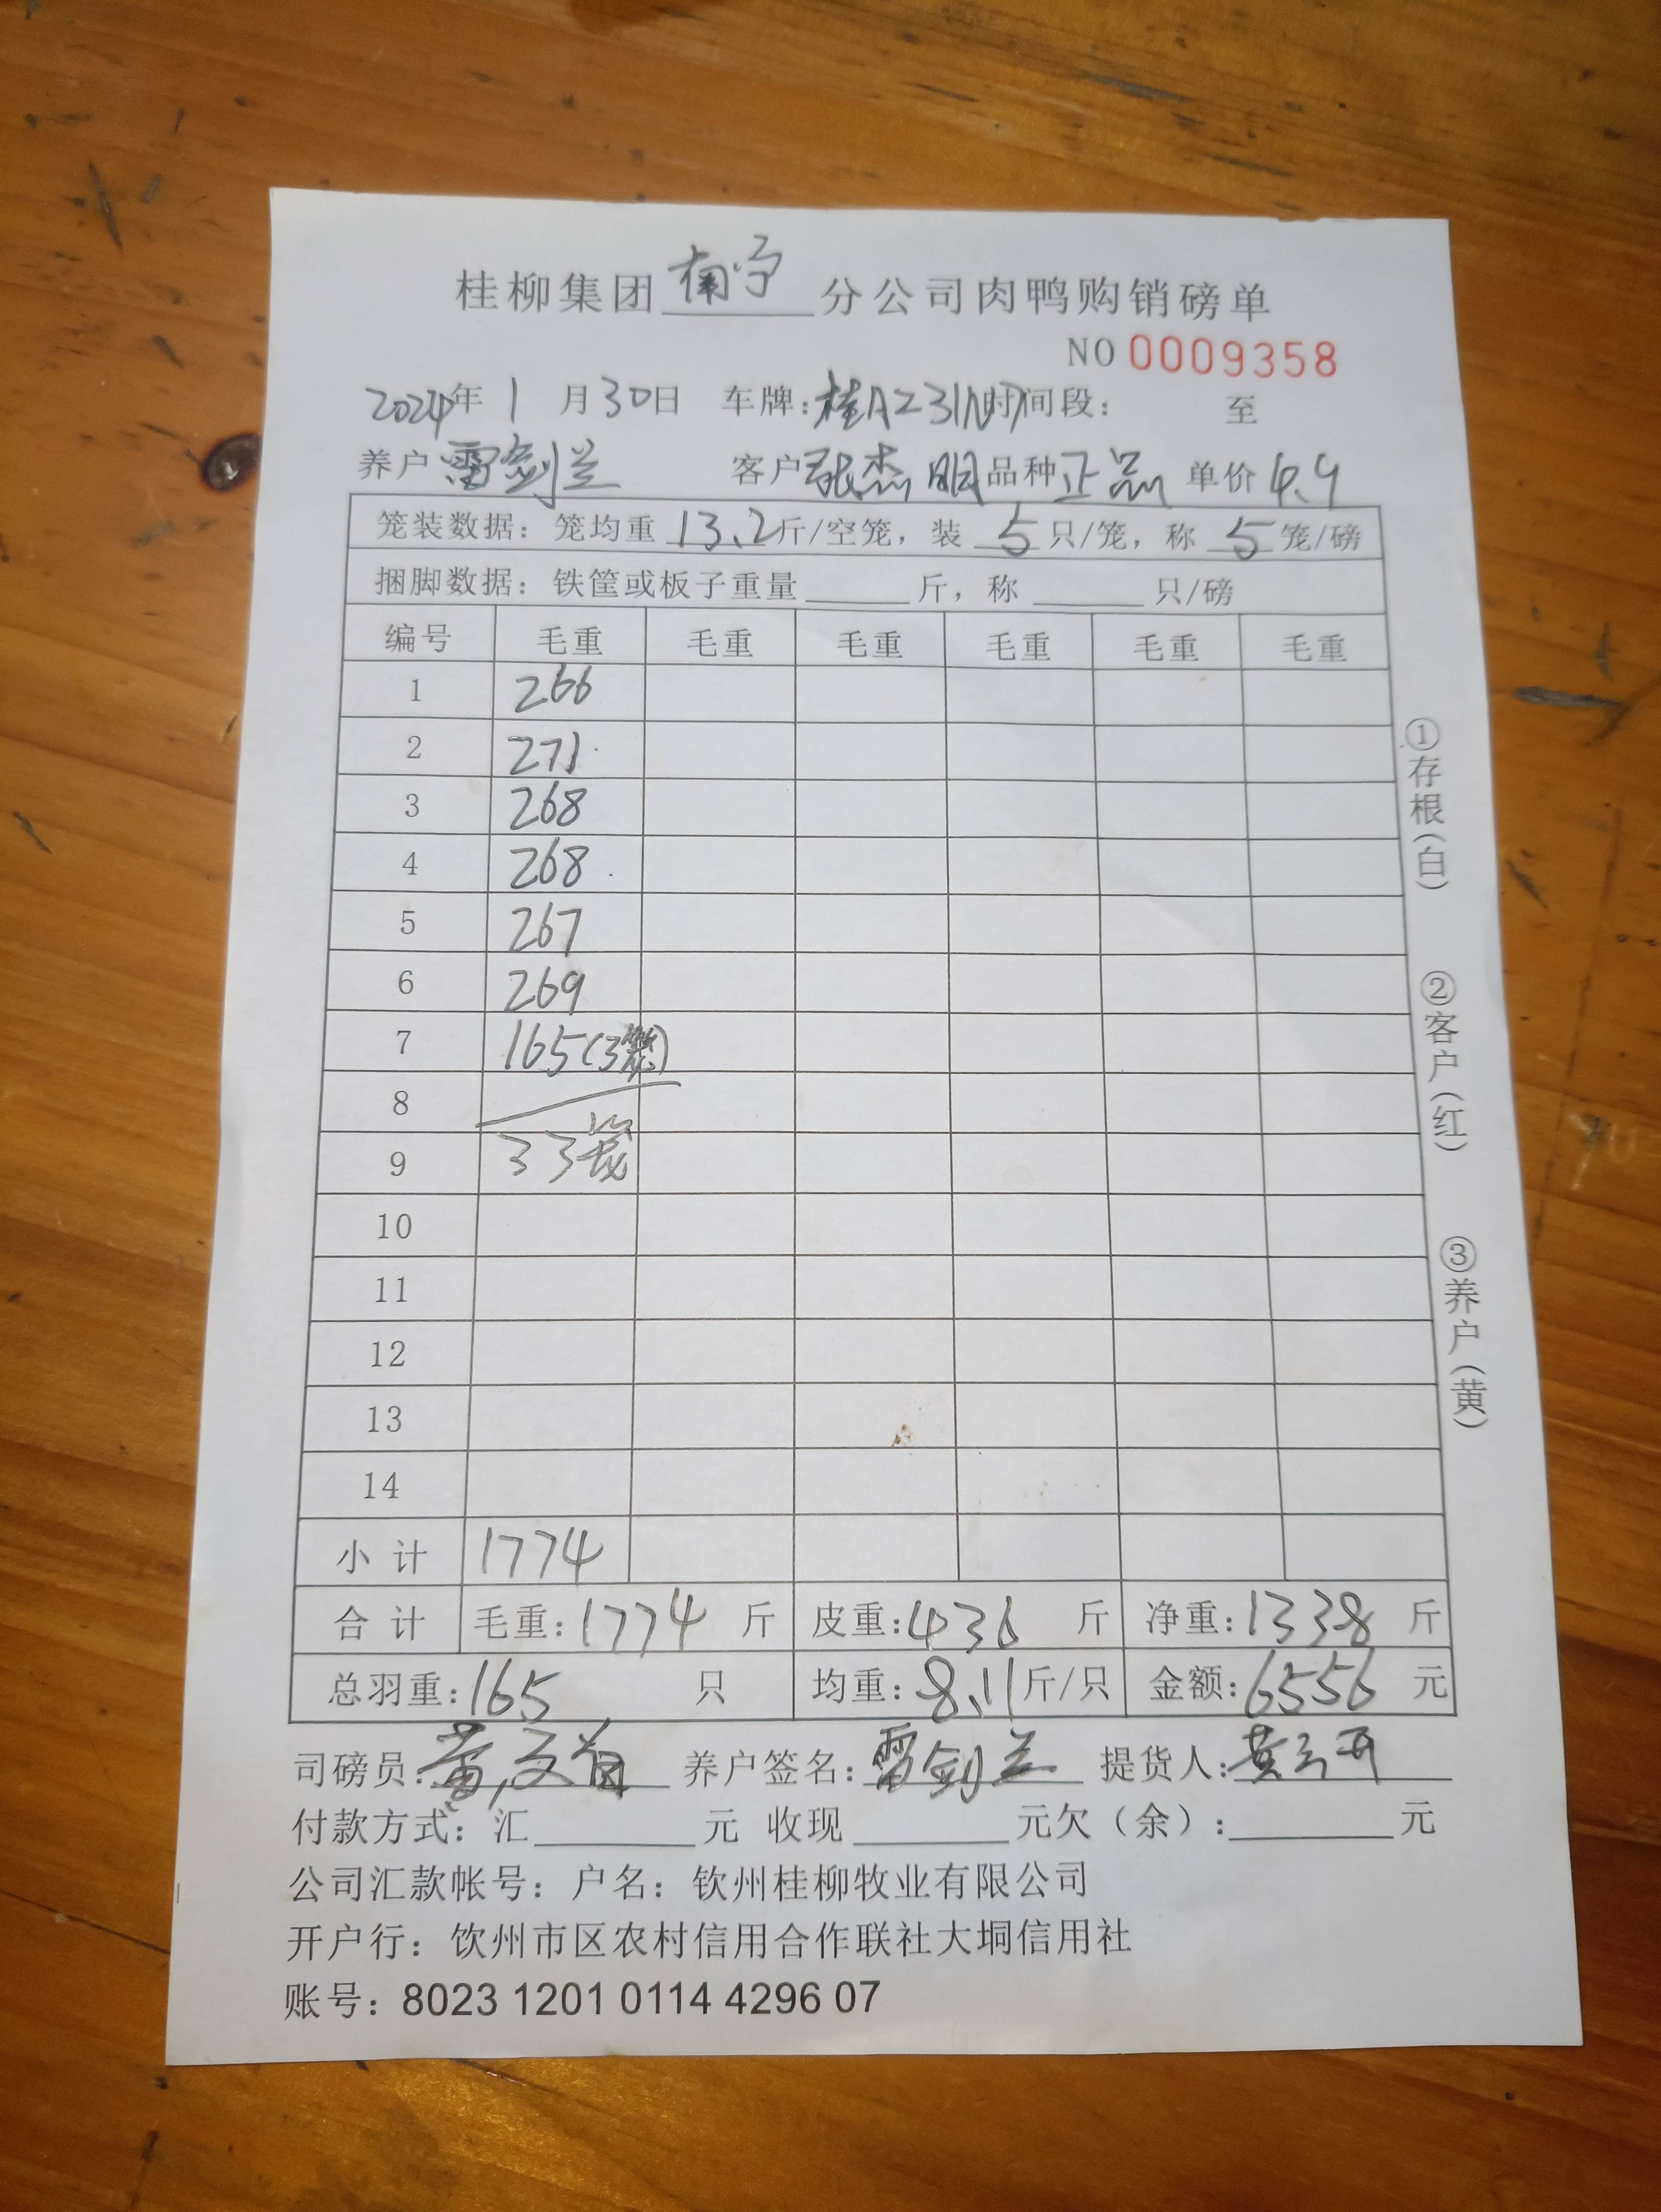 桂柳集团南宁分公司肉鸭购销磅单
NO 0009358
2024年1月30日 车牌:桂AZ31N时间段: 至
养户雷剑兰 客户张杰明品种正品 单价4.9
笼装数据:笼均重13.2斤/空笼,装5只/笼,称5笼/磅
捆脚数据:铁筐或板子重量______斤,称______只/磅
编号 毛重 毛重 毛重 毛重 毛重 毛重
1 266
2 271
3 268
4 268
5 267
6 269
7 165(3笼)
8
9 33笼
10
11
12
13
14
小计 1774
合计 毛重:1774斤 皮重:436斤 净重:1338斤
总羽重:165只 均重:8.11斤/只 金额:6556元
司磅员:黄 养户签名:雷剑兰 提货人:黄
付款方式:汇______元 收现______元欠(余):______元
公司汇款帐号:户名:钦州桂柳牧业有限公司
开户行:饮州市区农村信用合作联社大垌信用社
账号:8023 1201 0114 4296 07
①存根(白)
②客户(红)
③养户(黄)